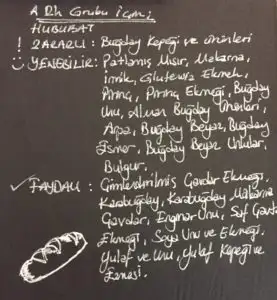 A Rh Grubu İçin;
HUBUBAT
! ZARARLI : Buğday Kepeği ve ürünleri
YENEBİLİR : Patlamış Mısır, Makarna,
İrmik, Glutensiz Ekmek,
Pirinç, Pirinç Ekmeği, Buğday
Unu, Alman Buğday Ürünleri,
Arpa, Buğday Beyaz, Buğday
Esmer, Buğday Beyaz Unlular,
Bulgur,
✓ FAYDALI : Çimlendirilmiş Gavdar Ekmeği,
Karabuğday, Karabuğday Makarna
Gavdar, Enginar Unu, Saf Gavdar
Ekmeği, Soya Unu ve Ekmeği.
Yulaf ve Unu, Yulaf Kepeği ve
Ezmesi.